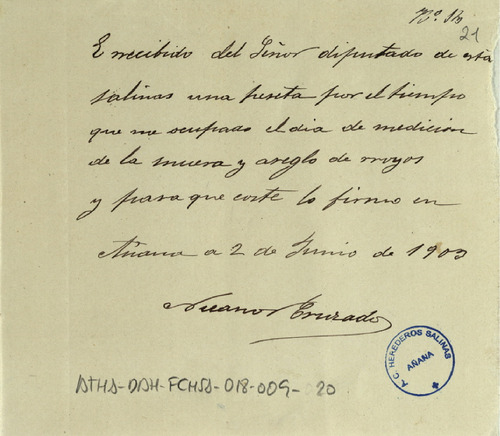 Nº 16
21
E recibido del Señor diputado de esta
salinas una peseta por el tiempo
que me ocupado el dia de medicion
de la muera y areglo de rroyos
y para que coste lo firmo en
Añana a 2 de Junio de 1903
Nicanor Cruzado
A. C. HEREDEROS SALINAS
AÑANA
ATHA-DAH-FCHSA-018-009-20